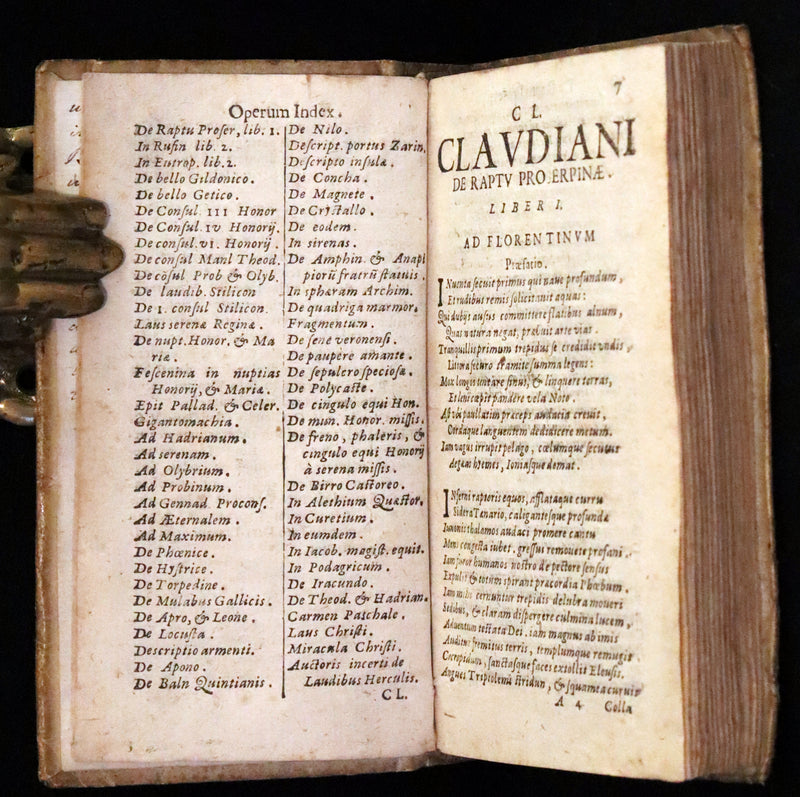 Operum Index.
De Raptu Proser, lib. 1.
In Rufin lib. 2.
In Eutrop. lib. 2.
De bello Gildonico.
De bello Getico.
De Consul III Honor
De Consul. IV Honorij.
De consul. vi. Honorij.
De consul Manl Theod.
De cõsul Prob & Olyb.
De laudib. Stilicon
De 1. consul Stilicon.
Laus serenæ Reginæ.
De nupt. Honor. & Ma
riæ.
Fescenina in nuptias
Honorij, & Mariæ.
Epit Pallad. & Celer.
Gigantomachia.
Ad Hadrianum.
Ad serenam.
Ad Olybrium.
Ad Probinum.
Ad Gennad. Proconſ.
Ad Æternalem.
Ad Maximum.
De Phœnice.
De Hyſtrice.
De Torpedine.
De Mulabus Gallicis.
De Apro, & Leone.
De Locuſta.
Deſcriptio armenti.
De Apono.
De Baln Quintianis.
De Nilo.
Deſcript. portus Zarin.
Deſcripto inſulæ.
De Concha.
De Magnete.
De Cryſtallo.
De eodem.
In sirenas.
De Amphin. & Anapi
piorũ fratrũ ſtatuis.
In ſphæram Archim.
De quadriga marmor.
Fragmentum.
De ſene veronenſi.
De paupere amante.
De ſepulcro ſpecioſæ.
De Polycaſte.
De cingulo equi Hon.
De mun. Honor. miſſis.
De freno, phaleris, &
cingulo equi Honorij
à serena miſſis.
De Birro Caſtoreo.
In Alethium Quæſtor.
In Curetium.
In eumdem.
In Iacob. magiſt. equit.
In Podagricum.
De Iracundo.
De Theod. & Hadrian.
Carmen Paſchale.
Laus Chriſti.
Miracula Chriſti.
Auctoris incerti de
Laudibus Herculis.
CL.
7
CL.
CLAVDIANI
DE RAPTV PROSERPINÆ.
LIBER I.
AD FLORENTINVM
Præfatio.
INuenta secuit primus qui naue profundum,
Et rudibus remis solicitauit aquas:
Qui dubijs ausus committere flatibus alnum,
Quas natura negat, præbuit arte vias.
Tranquillis primum trepidus se credidit vndis,
Littora securo tramite summa legens:
Mox longos tentare sinus, & linquere terras,
Et leui cœpit pandere vela Noto.
Ast vbi paullatim præceps audacia creuit,
Cordaque languentem dedidicere metum.
Iam vagus irrupit pelago, cœlumque secutus
Ægeas hyemes, Ioniasque domat.
INferni raptoris equos, afflataque curru
Sidera Tænario, caligantesque profundæ
Iunonis thalamos audaci promere cantu
Mens congesta iubet. gressus remouete profani.
Iam furor humanos nostro de pectore sensus
Expulit & totum spirant præcordia Phœbum.
Iam mihi cernuntur trepidis delubra moueri
Sedibus, & claram dispergere culmina lucem,
Aduentum testata Dei. iam magnus ab imis
Auditur fremitus terris, templumque remugit
Cecropidum, sanctasque faces extollit Eleusis.
Angues Triptolemi stridunt, & squamea curuis
A 4 Colla